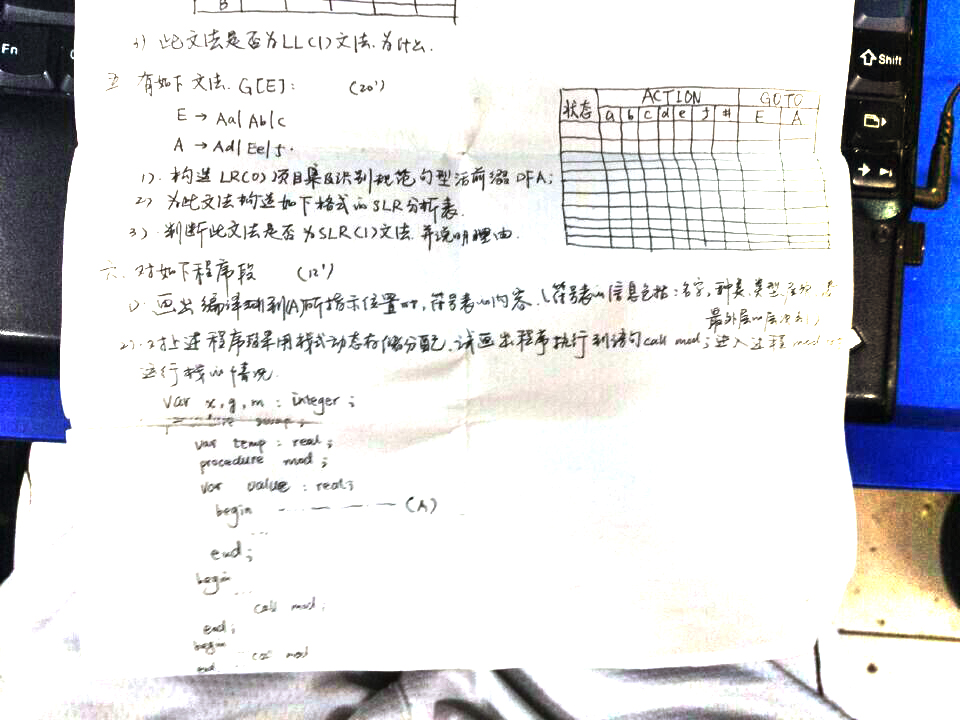 B
3) 此文法是否为LL(1)文法.为什么.
五 有如下文法. G[E]: (20')
E → Aa| Ab| c
A → Ad| Ee| f.
1). 构造LR(0)项目集及识别规范句型活前缀DFA;
2) 为此文法构造如下格式的SLR分析表.
3) 判断此文法是否为SLR(1)文法.并说明理由.
状态 ACTION GOTO
a b c d e f # E A
六. 对如下程序段 (12')
1) 画出编译到(A)所指示位置时,符号表的内容.(符号表的信息包括:名字,种类,类型
最外层的层次
2). 对上述程序段采用栈式动态存储分配,试画出程序执行到语句call mod;进入过程mod
运行栈的情况.
var x, y, m : integer ;
procedure swap;
var temp : real;
procedure mod ;
var value : real;
begin - - - - (A)
...
end;
begin
...
call mod;
end;
begin
... call mod
end.
Fn
Shift